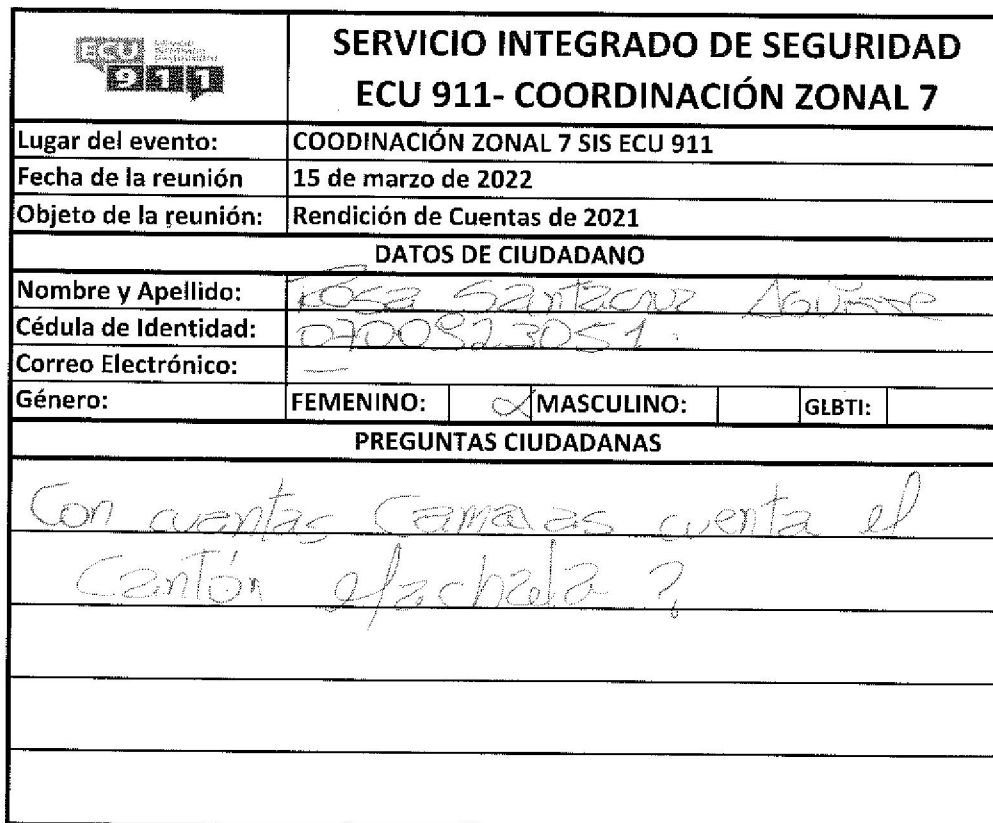 ECU
911
SERVICIO INTEGRADO DE SEGURIDAD
ECU 911- COORDINACIÓN ZONAL 7
Lugar del evento: COODINACIÓN ZONAL 7 SIS ECU 911
Fecha de la reunión 15 de marzo de 2022
Objeto de la reunión: Rendición de Cuentas de 2021
DATOS DE CIUDADANO
Nombre y Apellido: Rosa Santacruz Aguirre
Cédula de Identidad: 0700923051.
Correo Electrónico: —
Género: FEMENINO: X MASCULINO: GLBTI:
PREGUNTAS CIUDADANAS
Con cuantas Camaras cuenta el
Cantón Machala ?